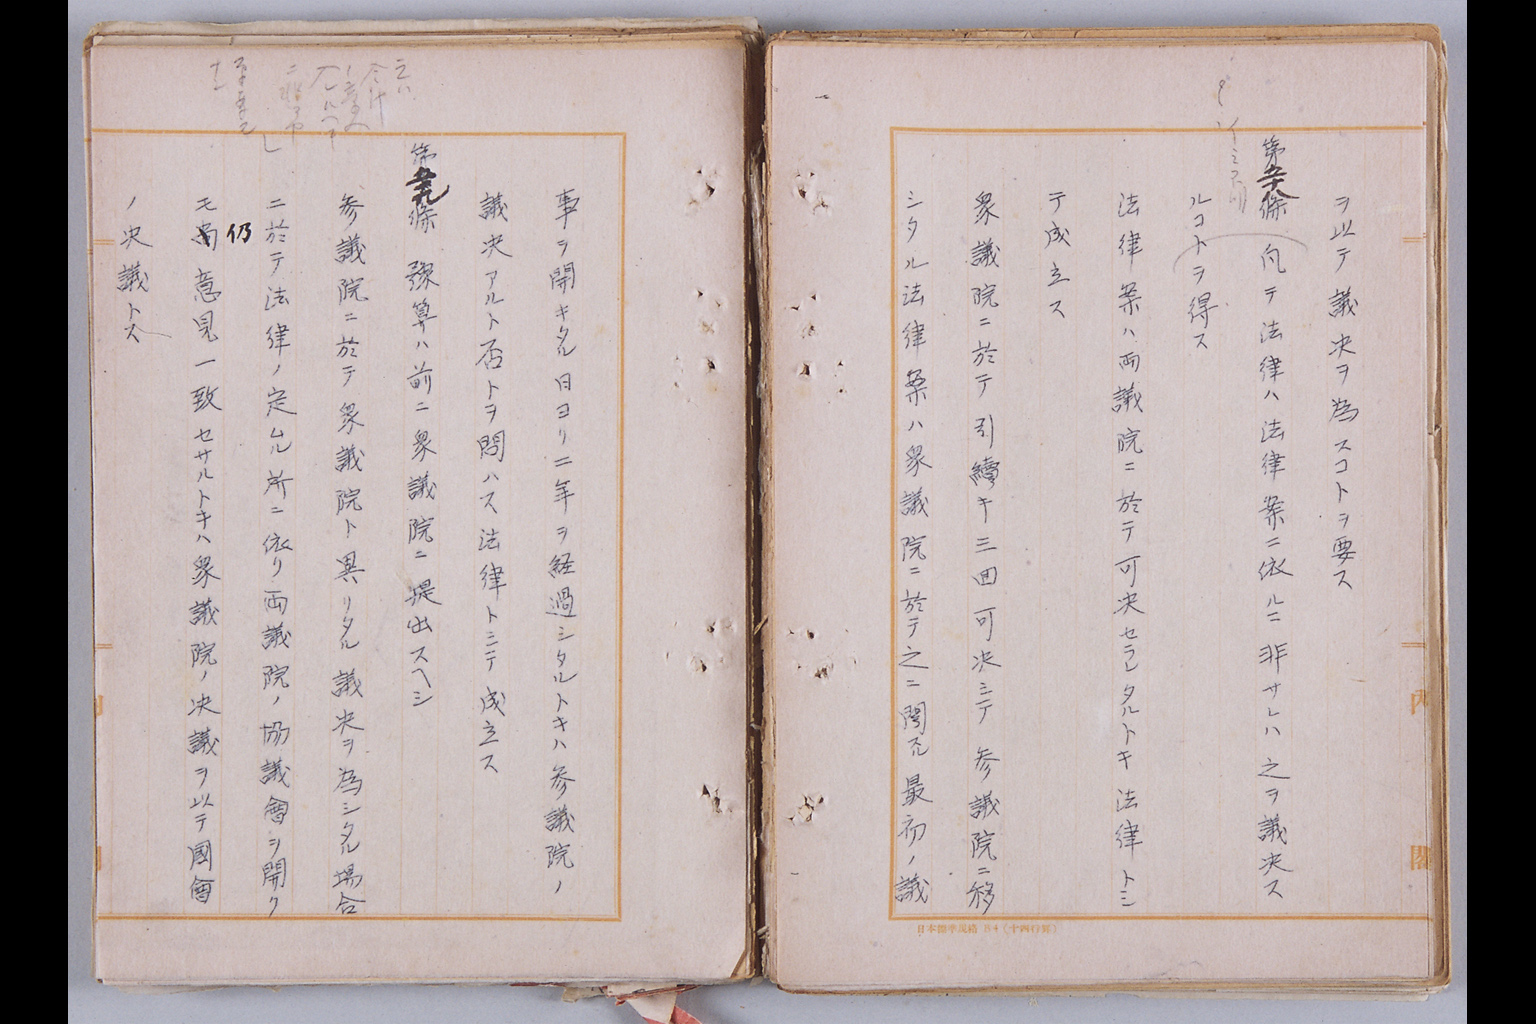 ヲ以テ議決ヲ為スコトヲ要ス
第五十八條 凡テ法律ハ法律案ニ依ルニ非サレハ之ヲ議決ス
ルコトヲ得ス
法律案ハ両議院ニ於テ可決セラレタルトキ法律トシ
テ成立ス
衆議院ニ於テ引續キ三回可決シテ参議院ニ移
シタル法律案ハ衆議院ニ於テ之ニ関スル最初ノ議
日本標準規格 B4(十四行罫)
内
閣
事ヲ開キタル日ヨリ二年ヲ経過シタルトキハ参議院ノ
議決アルト否トヲ問ハス法律トシテ成立ス
第五十九條 豫算ハ前ニ衆議院ニ提出スヘシ
参議院ニ於テ衆議院ト異リタル議決ヲ為シタル場合
ニ於テ法律ノ定ムル所ニ依リ両議院ノ協議會ヲ開ク
モ仍意見一致セサルトキハ衆議院ノ決議ヲ以テ國會
ノ決議トス